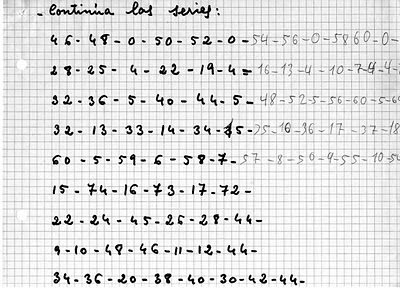 - Continúa las series:
46 - 48 - 0 - 50 - 52 - 0 - 54 - 56 - 0 - 58 60 - 0 -
28 - 25 - 4 - 22 - 19 - 4 = 16 - 13 - 4 - 10 - 7 - 4 - 4
32 - 36 - 5 - 40 - 44 - 5 - 48 - 52 - 5 - 56 - 60 - 5 - 64
32 - 13 - 33 - 14 - 34 - 15 - 35 - 16 - 36 - 17 - 37 - 18
60 - 5 - 59 - 6 - 58 - 7 - 57 - 8 - 56 - 9 - 55 - 10 - 54
15 - 74 - 16 - 73 - 17 - 72 -
22 - 24 - 45 - 26 - 28 - 44 -
9 - 10 - 48 - 46 - 11 - 12 - 44 -
34 - 36 - 20 - 38 - 40 - 30 - 42 - 44 -